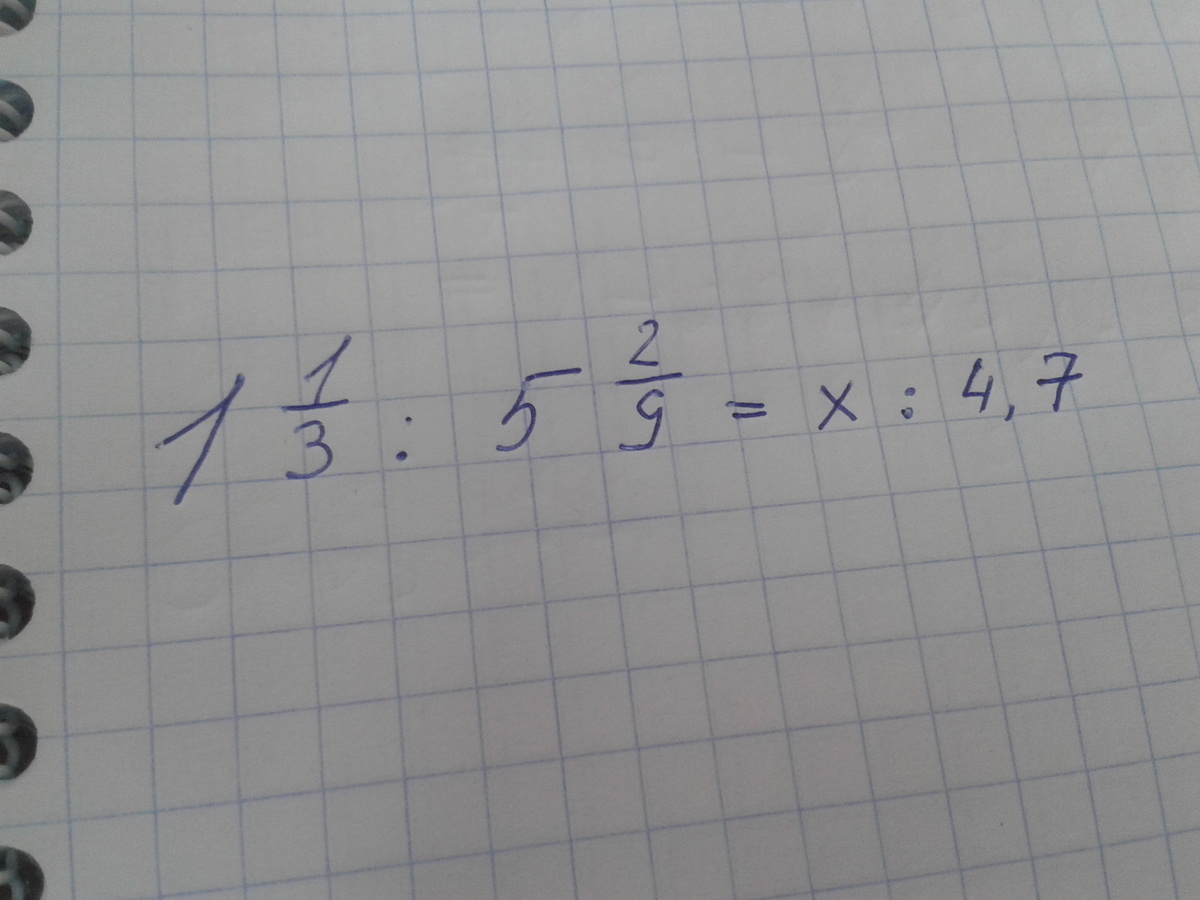 1 1/3 : 5 2/9 = x : 4,7